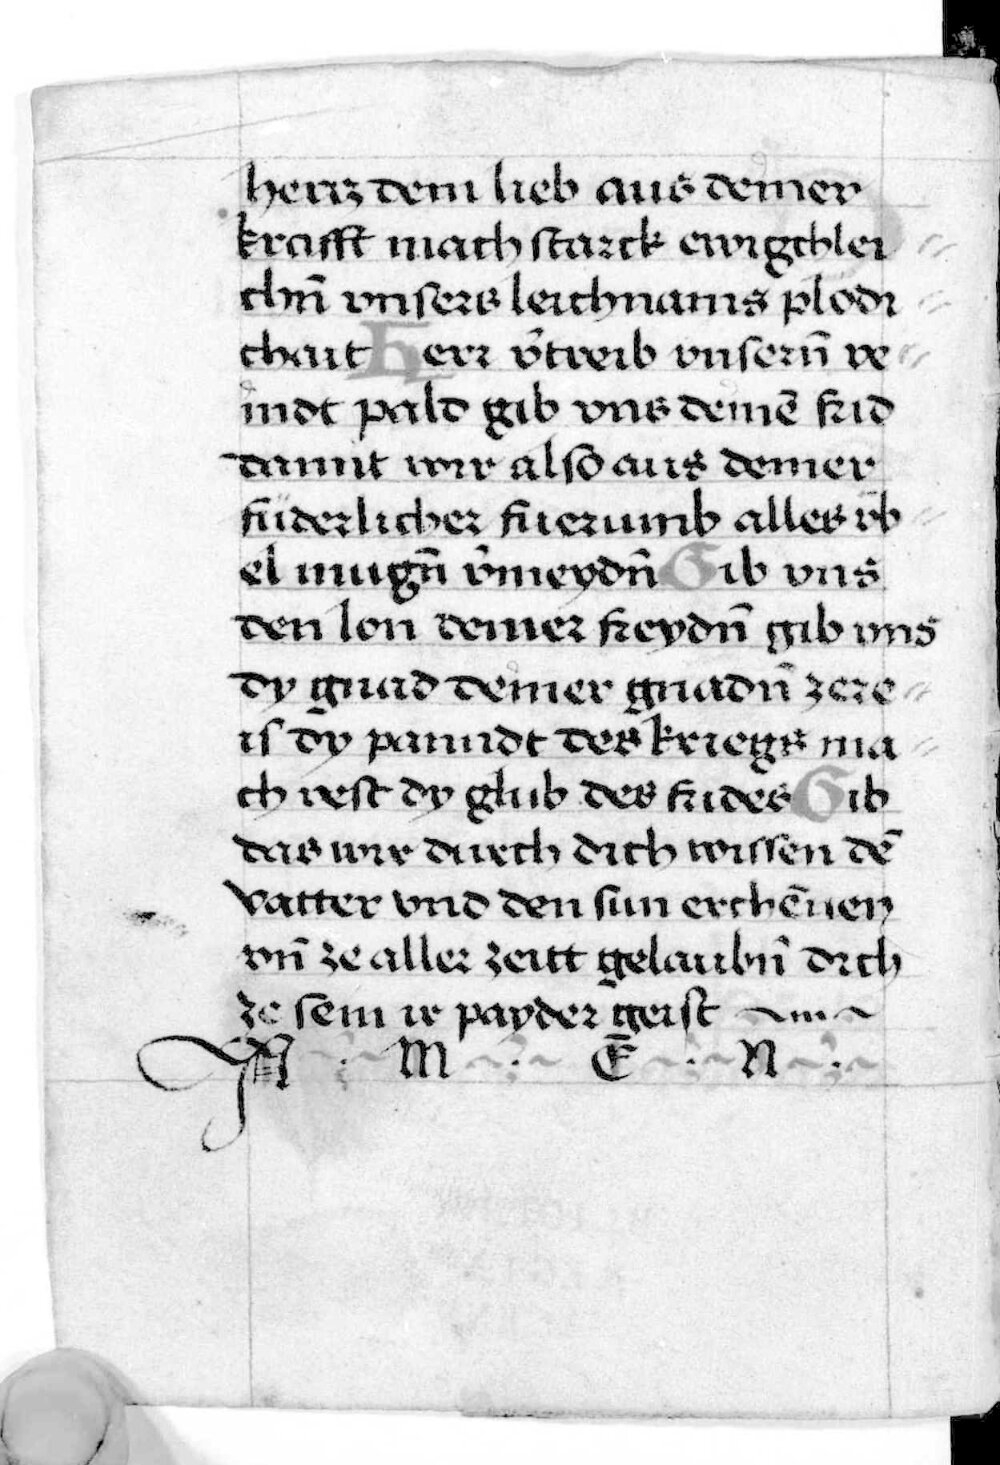 hercz dein lieb aus deiner
krafft mach starck ewigchlei
chn̄ vnsers leichnams plödi
chait Herr v̄treib vnsern̄ ve
indt pald gib vns deinē frid
damit wir also aus deiner
füderlicher fuerumb alles vb
el mugn̄ v̄meydn̄ Gib vns
den lon deiner freydn̄ gib vns
dy gnad deiner gnadn̄ zere
is dy panndt des kriegs ma
ch vest dy glub des frides Gib
das wir durch dich wissen dē
vatter vnd den sun erchēnen
vn̄ ze aller zeitt gelaubn̄ dich
ze sein ir payder geist
A M Ē N